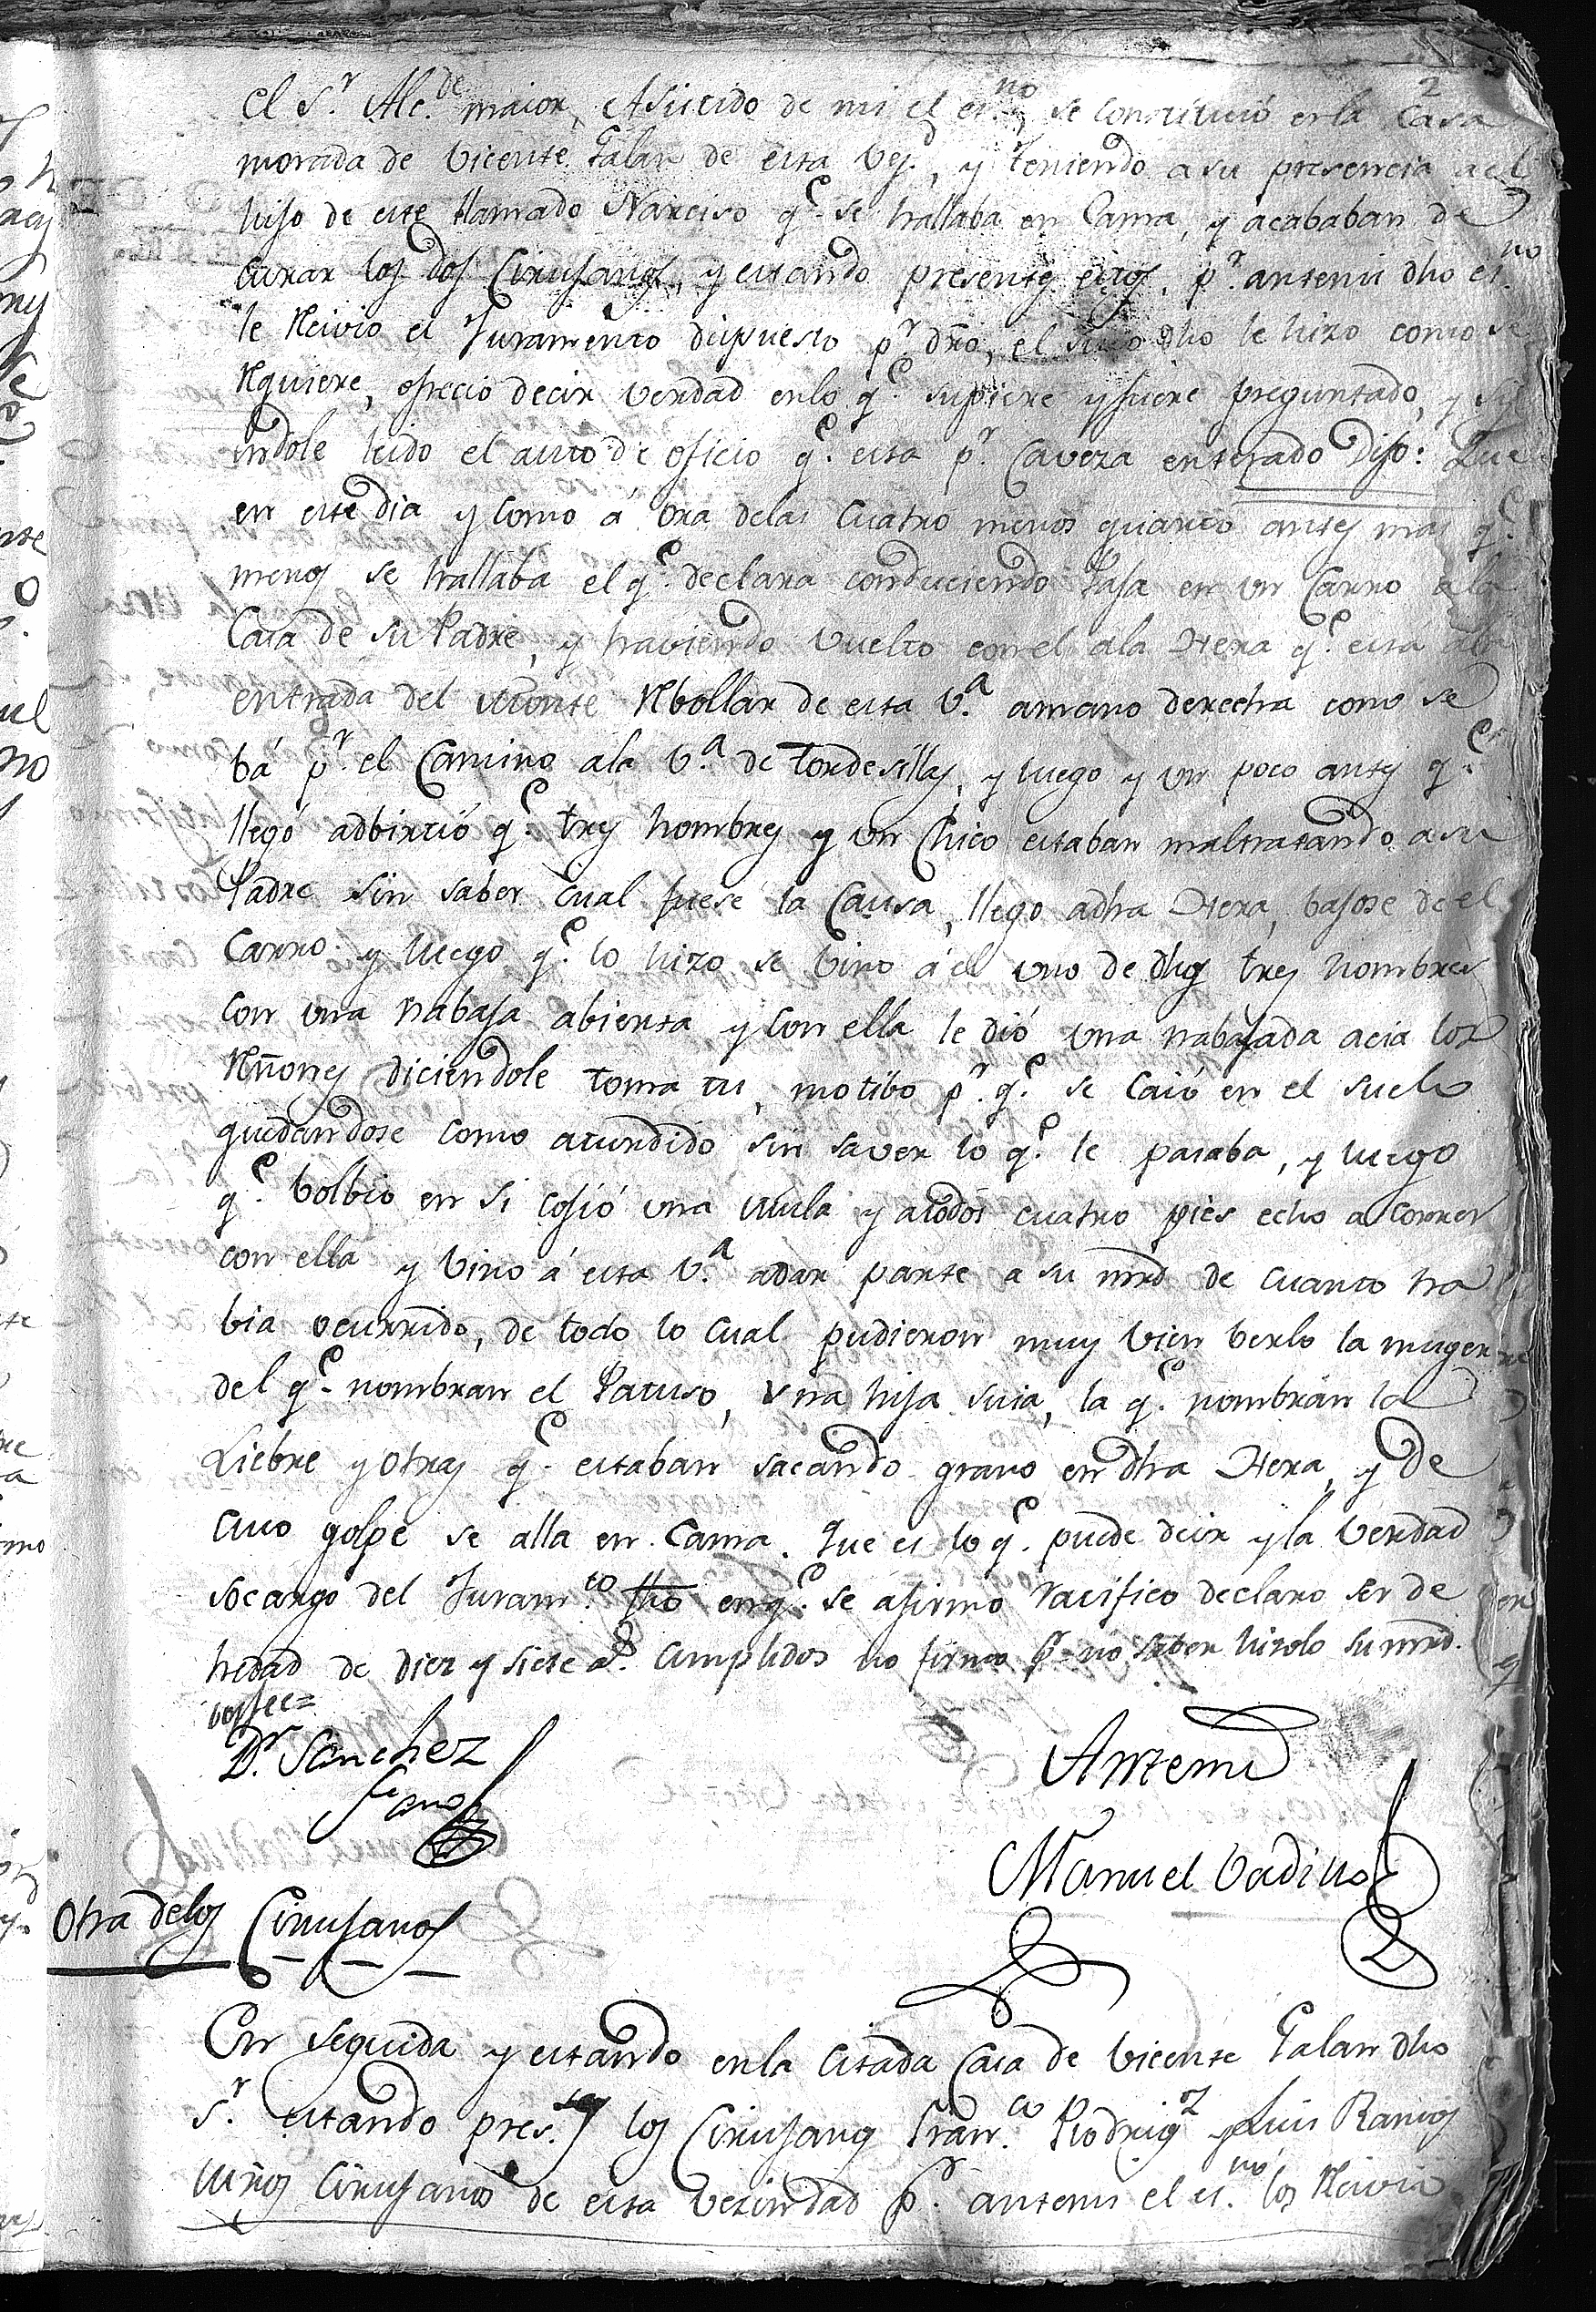 2
el S.r Alc.de maior, Asistido de mi el es.no se constituió en la Casa
morada de Vicente Galan de esta vez.d, y teniendo a su presencia a el
hijo de este llamado Narciso q.e se hallaba en Cama, y acababan de
curar los dos Cirujanos, y estando presentes estos, p.r antemi dho es.no
le Recivio el Juramento dispuesto p.r dro, el suso dho le hizo como se
Requiere, ofrecio decir verdad en lo q.e supiere y fuere preguntado, y
endole leido el auto de oficio q.e esta p.r Caveza enterado Dijo: Que
en este dia y como á ora delas cuatro menos quarto antes mas q.e
menos se hallaba el q.e declara conduciendo Paja en un Carro ala
Casa de su Padre, y haviendo vuelto con el ala Hera q.e esta ala
entrada del Monte Rbollar de esta V.a amano derecha como se
bá p.r el Camino ala V.a de tordesillas, y luego y un poco antes q.e
llegó adbirtió q.e tres hombres y un Chico estaban maltratando a su
Padre sin saber cual fuese la Causa, llego adha Hera, bajose de el
Carro y luego q.e lo hizo se bino á el uno de dhos tres hombres
con una nabaja abierta y con ella le dió una nabajada acia los
Riñones diciendole toma tu, motibo p.r q.e se caió en el suelo
quedandose como aturdido sin saver lo q.e le pasaba, y luego
q.e bolbio en si cojió una mula y atodos cuatro pies echo a correr
con ella y bino á esta V.a adar parte a su mrd de cuanto ha
bia ocurrido, de todo lo cual pudieron muy bien berlo la muger
del q.e nombran el Patuso, una hija suia, la q.e nombran la
Liebre y otras q.e estaban sacando grano en dha Hera, y de
cuio golpe se alla en Cama. Que es lo q.e puede decir y la verdad
socargo del Juram.to fho en q.e se afirmo Ratifico declaro ser de
hedad de diez y siete a.s cumplidos no firmo p.r no saber hizolo su mrd.
doy fee=
D.r Sanchez
Cano
Antemi
Manuel Vadillo
Otra delos Cirujanos
En seguida y estando en la citada Casa de Vicente Galan dho
S.r estando pres.tes los Cirujanos Fran.co Rodrig.z y Luis Ramos
Cirujanos de esta vezindad p.r antemi el es.no los Recivio